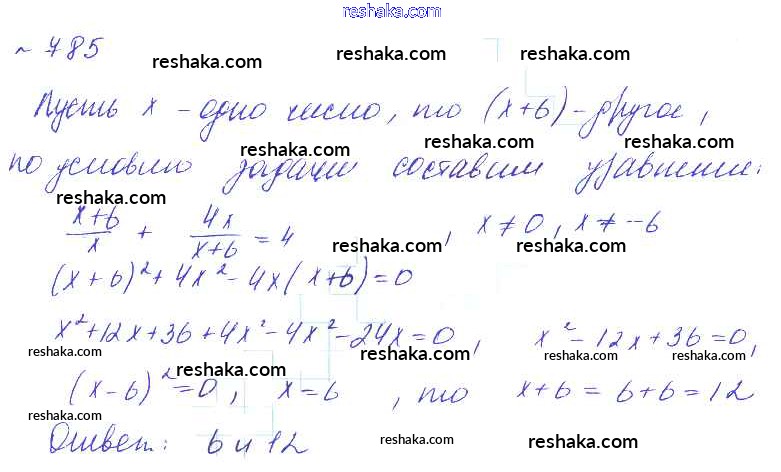 reshaka.com
~ 785
reshaka.com reshaka.com reshaka.com
Пусть x - одно число, то (x+6) - другое,
reshaka.com reshaka.com reshaka.com
по условию задачи составим уравнение:
reshaka.com
x+6/x + 4x/x+6 = 4, x ≠ 0, x ≠ -6
reshaka.com reshaka.com
(x+6)² + 4x² - 4x(x+6) = 0
x² + 12x + 36 + 4x² - 4x² - 24x = 0, x² - 12x + 36 = 0,
reshaka.com reshaka.com reshaka.com reshaka.com
(x-6)² = 0, x = 6, то x+6 = 6+6 = 12
reshaka.com reshaka.com
Ответ: 6 и 12
reshaka.com reshaka.com